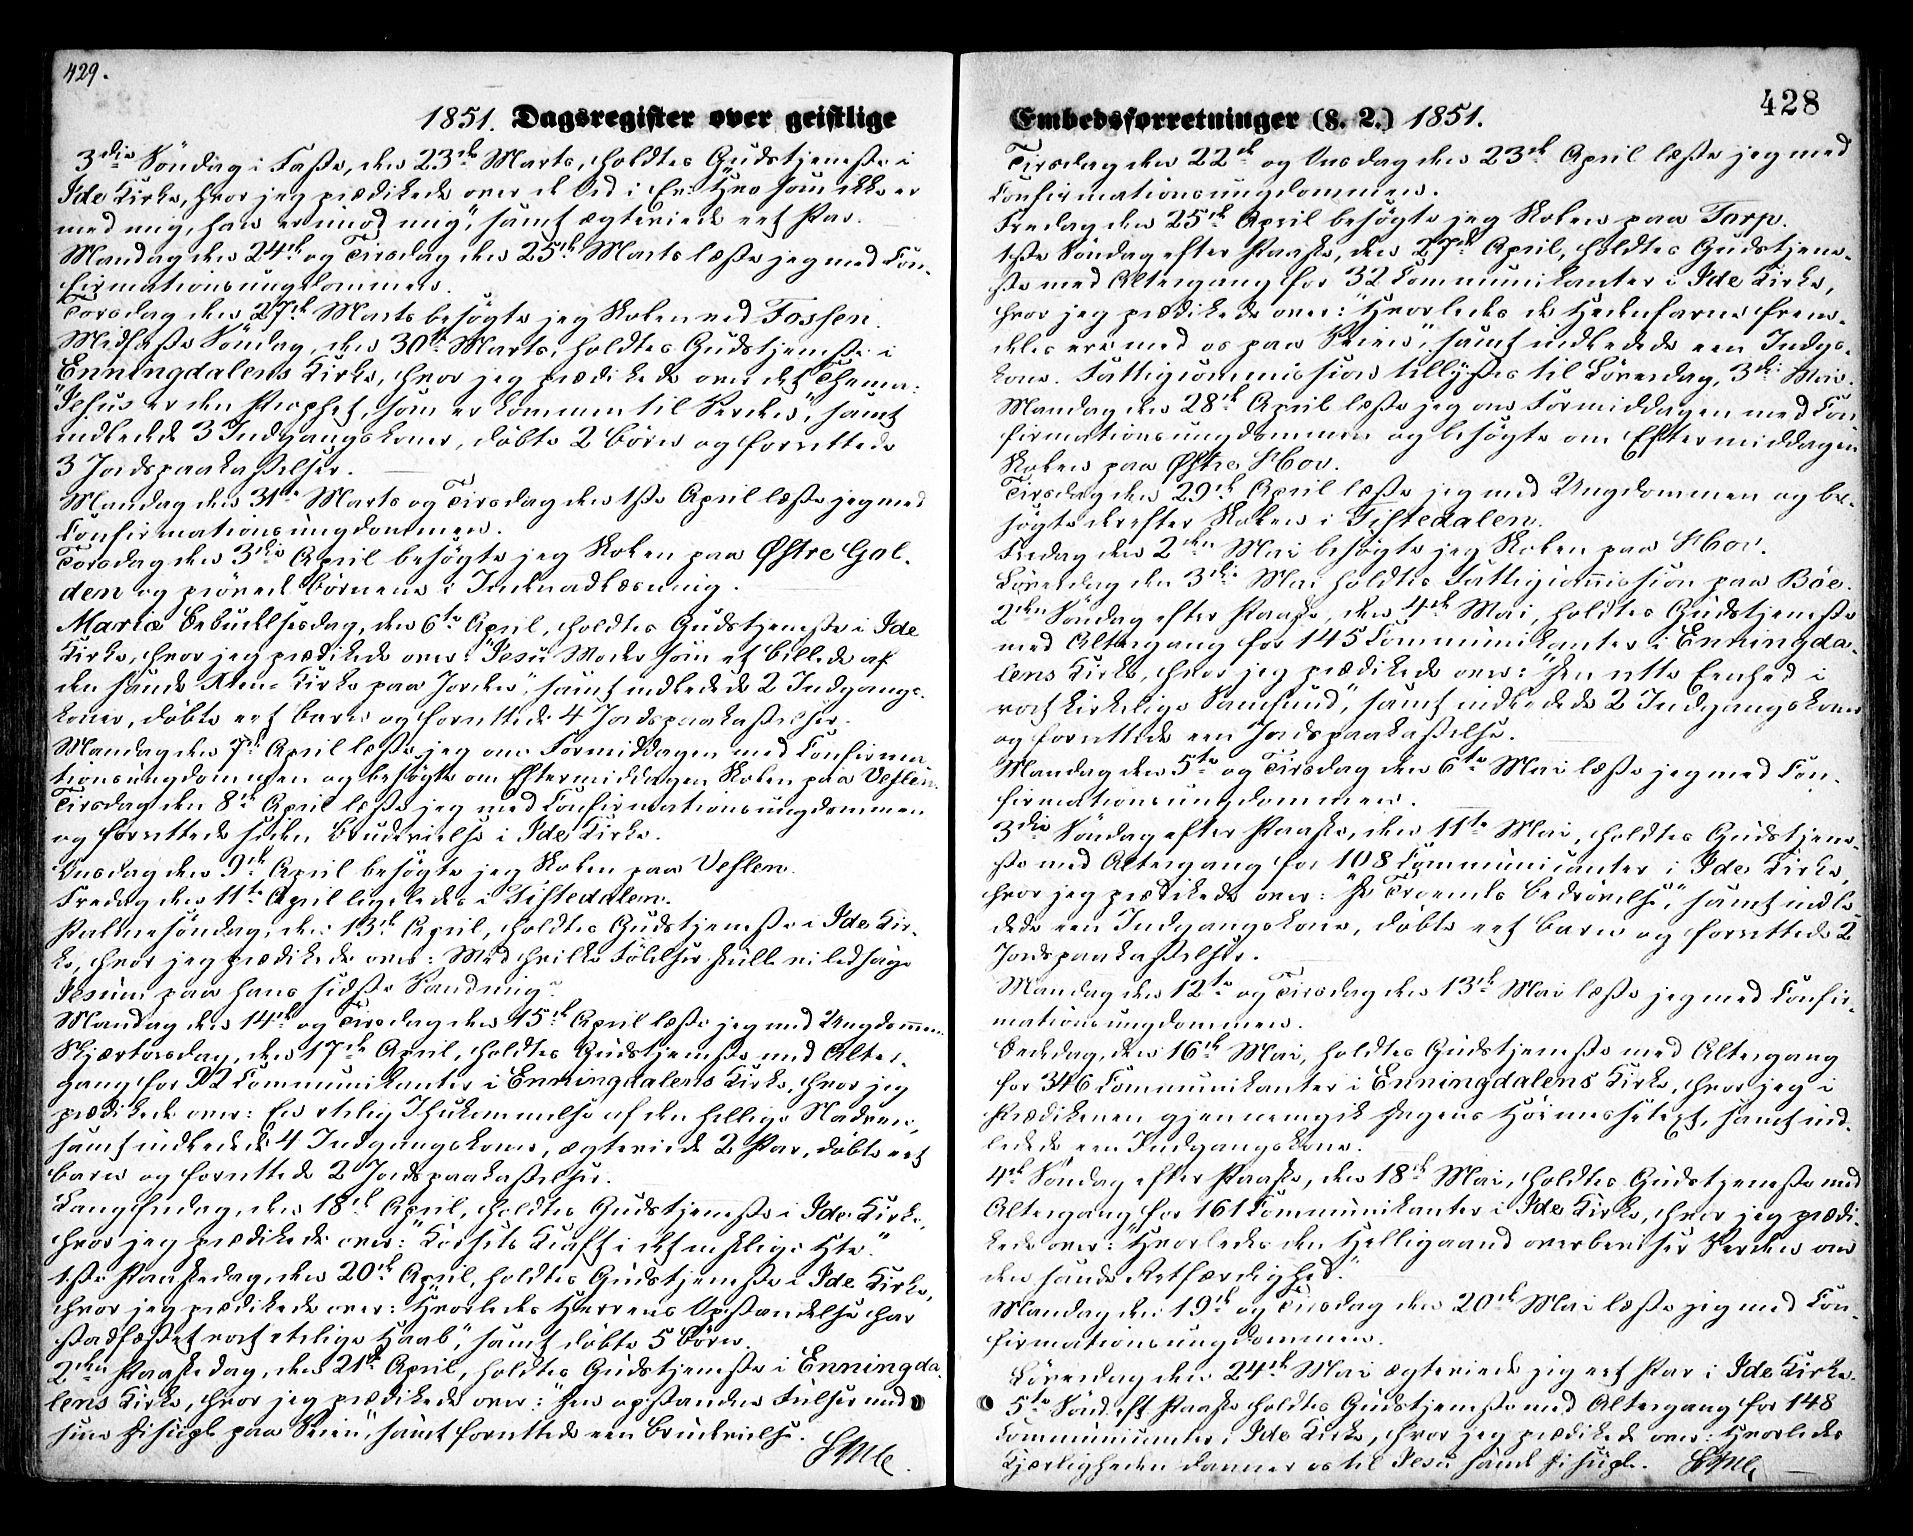 429.
1851. Dagsregister over geistlige
3die Söndag i Faste, den 23de Marts, holdtes Gudstjeneste i
Ide Kirke, hvor jeg prædikede over de Ord i Ev: Hvo som ikke er
med mig, han er mod mig", samt ægteviede eet Par.
Mandag den 24de og Tirsdag den 25de Marts læste jeg med Con-
firmationsungdommen.
Torsdag den 27de Marts besögte jeg Skolen ved Fossen.
Midfaste Söndag, den 30te Marts, holdtes Gudstjeneste i
Enningdalens Kirke, hvor jeg prædikede over det Thema:
"Jesus er den Prophet, som er kommen til Verden", samt
indledede 3 Indgangskoner, döbte 2 Börn og forrettede
3 Jordspaakastelser.
Mandag den 31te Marts og Tirsdag den 1ste April læste jeg med
Confirmationsungdommen.
Torsdag den 3die April besögte jeg Skolen paa Østre Gal-
den og prövede Börnene i Indenadlæsning.
Mariæ Bebudelsesdag, den 6te April, holdtes Gudstjeneste i Ide
Kirke, hvor jeg prædikede over: "Jesu Moder som et Billede af
den sande Kirke paa Jorden", samt indledede 2 Indgangs-
koner, döbte eet Barn og forrettede 4 Jordspaakastelser.
Mandag den 7de April læste jeg om Formiddagen med Confirma-
tionsungdommen og besögte om Eftermiddagen Skolen paa Veslen.
Tirsdag den 8de April læste jeg med Confirmationsungdommen
og forrettede siden Brudevielse i Ide Kirke.
Onsdag den 9de April besögte jeg Skolen paa Veslen.
Fredag den 11te April ligeledes i Tistedalen.
Palmesöndag, den 13de April, holdtes Gudstjeneste i Ide Kir-
ke, hvor jeg prædikede over: Med hvilke Fölelser skulle vi ledsage
Jesum paa hans sidste Vandring?
Mandag den 14de og Tirsdag den 15de April læste jeg med Ungdommen.
Skjærtorsdag, den 17de April, holdtes Gudstjeneste med Alter-
gang for 92 Communikanter i Enningdalens Kirke, hvor jeg
prædikede over: En Ihukommelse af den hellige Nadvere,
samt indledede 4 Indgangskoner, ægteviede 2 Par, döbte eet
Barn og forrettede 2 Jordspaakastelser.
Langfredag, den 18de April, holdtes Gudstjeneste i Ide Kirke,
hvor jeg prædikede over: "Korsets Kraft i det
1ste Paaskedag, den 20de April, holdtes Gudstjeneste i Ide Kirke,
hvor jeg prædikede over: Hvorledes Herrens Opstandelse har
stadfæstet vort Haab", samt döbte 5 Börn.
2den Paaskedag, den 21de April, holdtes Gudstjeneste i Enningda-
lens Kirke, hvor jeg prædikede over: "Den opstandne Frelser med
sine Disciple paa Veien", samt forrettede een Brudevielse.
428
Embedsforretninger (§. 2.) 1851.
Tirsdag den 22de og Onsdag den 23de April læste jeg med
Confirmationsungdommen.
Fredag den 25de April besögte jeg Skolen paa Torp.
1ste Söndag efter Paaske, den 27de April, holdtes Gudstjene-
ste med Altergang for 32 Communikanter i Ide Kirke,
hvor jeg prædikede over: "Hvorledes de Hedenfarne frem-
deles ere med os paa Veien", samt indledede een Indgs-
kone. Fattigcommission tillystes til Löverdag, 3die Mai.
Mandag den 28de April læste jeg om Formiddagen med Con
firmationsungdommen og besögte om Eftermiddagen
Skolen paa Østre Hov.
Tirsdag den 29de April læste jeg med Ungdommen og be-
sögte derefter Skolen i Tistedalen.
Fredag den 2den Mai besögte jeg Skolen paa Hov.
Löverdag den 3die Mai holdtes Fattigcommission paa Böe.
2den Söndag efter Paaske, den 4de Mai, holdtes Gudstjeneste
med Altergang for 145 Communikanter i Enningda-
lens Kirke, hvor jeg prædikede over: "Den rette Eenhed i
vort kirkelige Samfund", samt indledede 2 Indgangskoner
og forrettede een Jordspaakastelse.
Mandag den 5te og Tirsdag den 6te Mai læste jeg med Con-
firmationsungdommen.
3die Söndag efter Paaske, den 11te Mai, holdtes Gudstjene-
ste med Altergang for 108 Communicanter i Ide Kirke,
hvor jeg prædikede over: "De Troendes Bedrövelse", samt indle-
dede een Indgangskone, döbte eet Barn og forrettede 2
Jordspaakastelser.
Mandag den 12te og Tirsdag den 13de Mai læste jeg med Confir-
mationsungdommen.
Bededag, den 16de Mai, holdtes Gudstjeneste med Altergang
for 346 Communikanter i Enningdalens Kirke, hvor jeg i
Prædikenen gjennemgik Dagens Höimessetext, samt ind-
ledede een Indgangskone.
4de Söndag efter Paaske, den 18de Mai, holdtes Gudstjeneste med
Altergang for 161 Communikanter i Ide Kirke, hvor jeg prædi-
kede over: "Hvorledes den Helligaand overbeviser Verden om
den sande Retfærdighed."
Mandag den 19de og Tirsdag den 20de Mai læste jeg med Con-
firmationsungdommen.
Löverdag den 24de Mai ægteviede jeg eet Par i Ide Kirke.
5te Sönd. eft Paaske holdtes Gudstjeneste med Altergang for 148
Communicanter i Ide Kirke, hvor jeg prædikede over: Hvorledes
Kjærligheden danner os til Jesu sande Disciple.